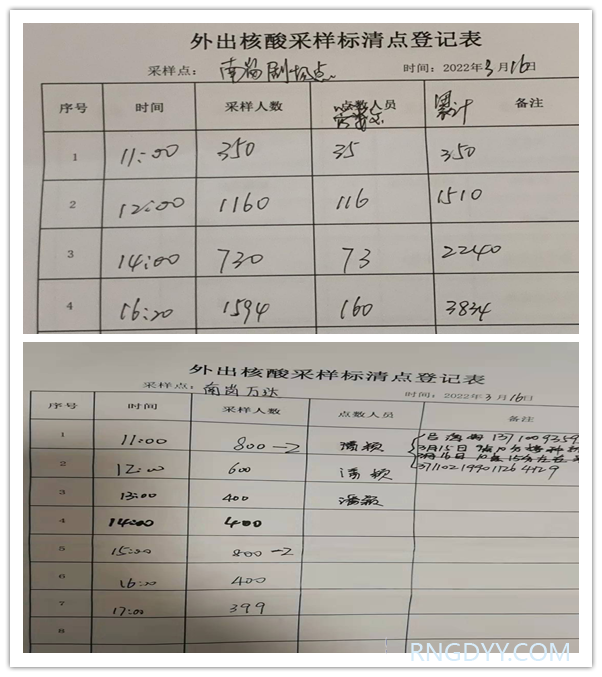 外出核酸采样标清点登记表
采样点：南岗剧场点 时间：2022年3月16日
序号 时间 采样人数 点数人员 累计 备注
1 11:00 350 35 350
2 12:00 1160 116 1510
3 14:00 730 73 2240
4 16:20 1594 160 3834
外出核酸采样标清点登记表
采样点：南岗万达 时间：2022年3月16日
序号 时间 采样人数 点数人员 备注
1 11:00 800-2 潘颖
2 12:00 600 潘颖
3 13:00 400 潘颖
4 14:00 400
5 15:00 800-2
6 16:20 400
7 17:00 399
8
RNGDYY.COM